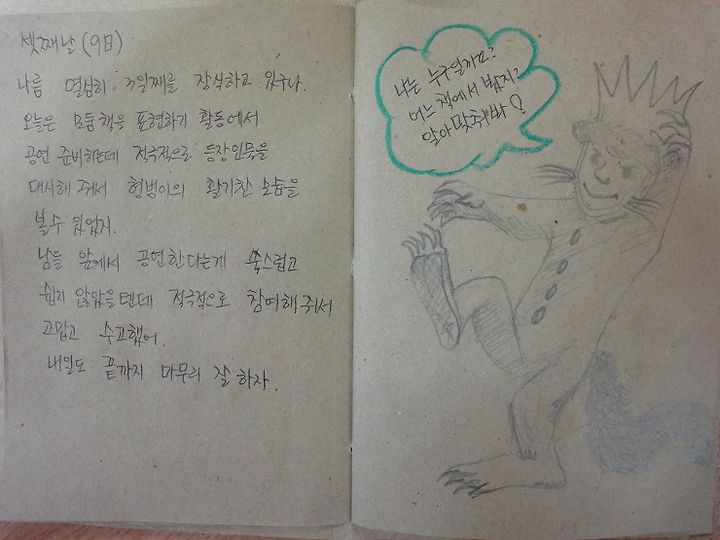 셋째날 (9日)
나름 열심히 3일째를 장식하고 있구나.
오늘은 모둠책을 표현하기 활동에서
공연 준비하는데 적극적으로 등장인물을
대시해 줘서 형범이의 활기찬 모습을
볼수 있었지.
남들 앞에서 공연한다는게 쑥스럽고
쉽지 않았을텐데 적극적으로 참여해 줘서
고맙고 수고했어.
내일도 끝까지 마무리 잘 하자.
나는 누구일까요?
어느 책에서 봤지?
알아맞춰봐!